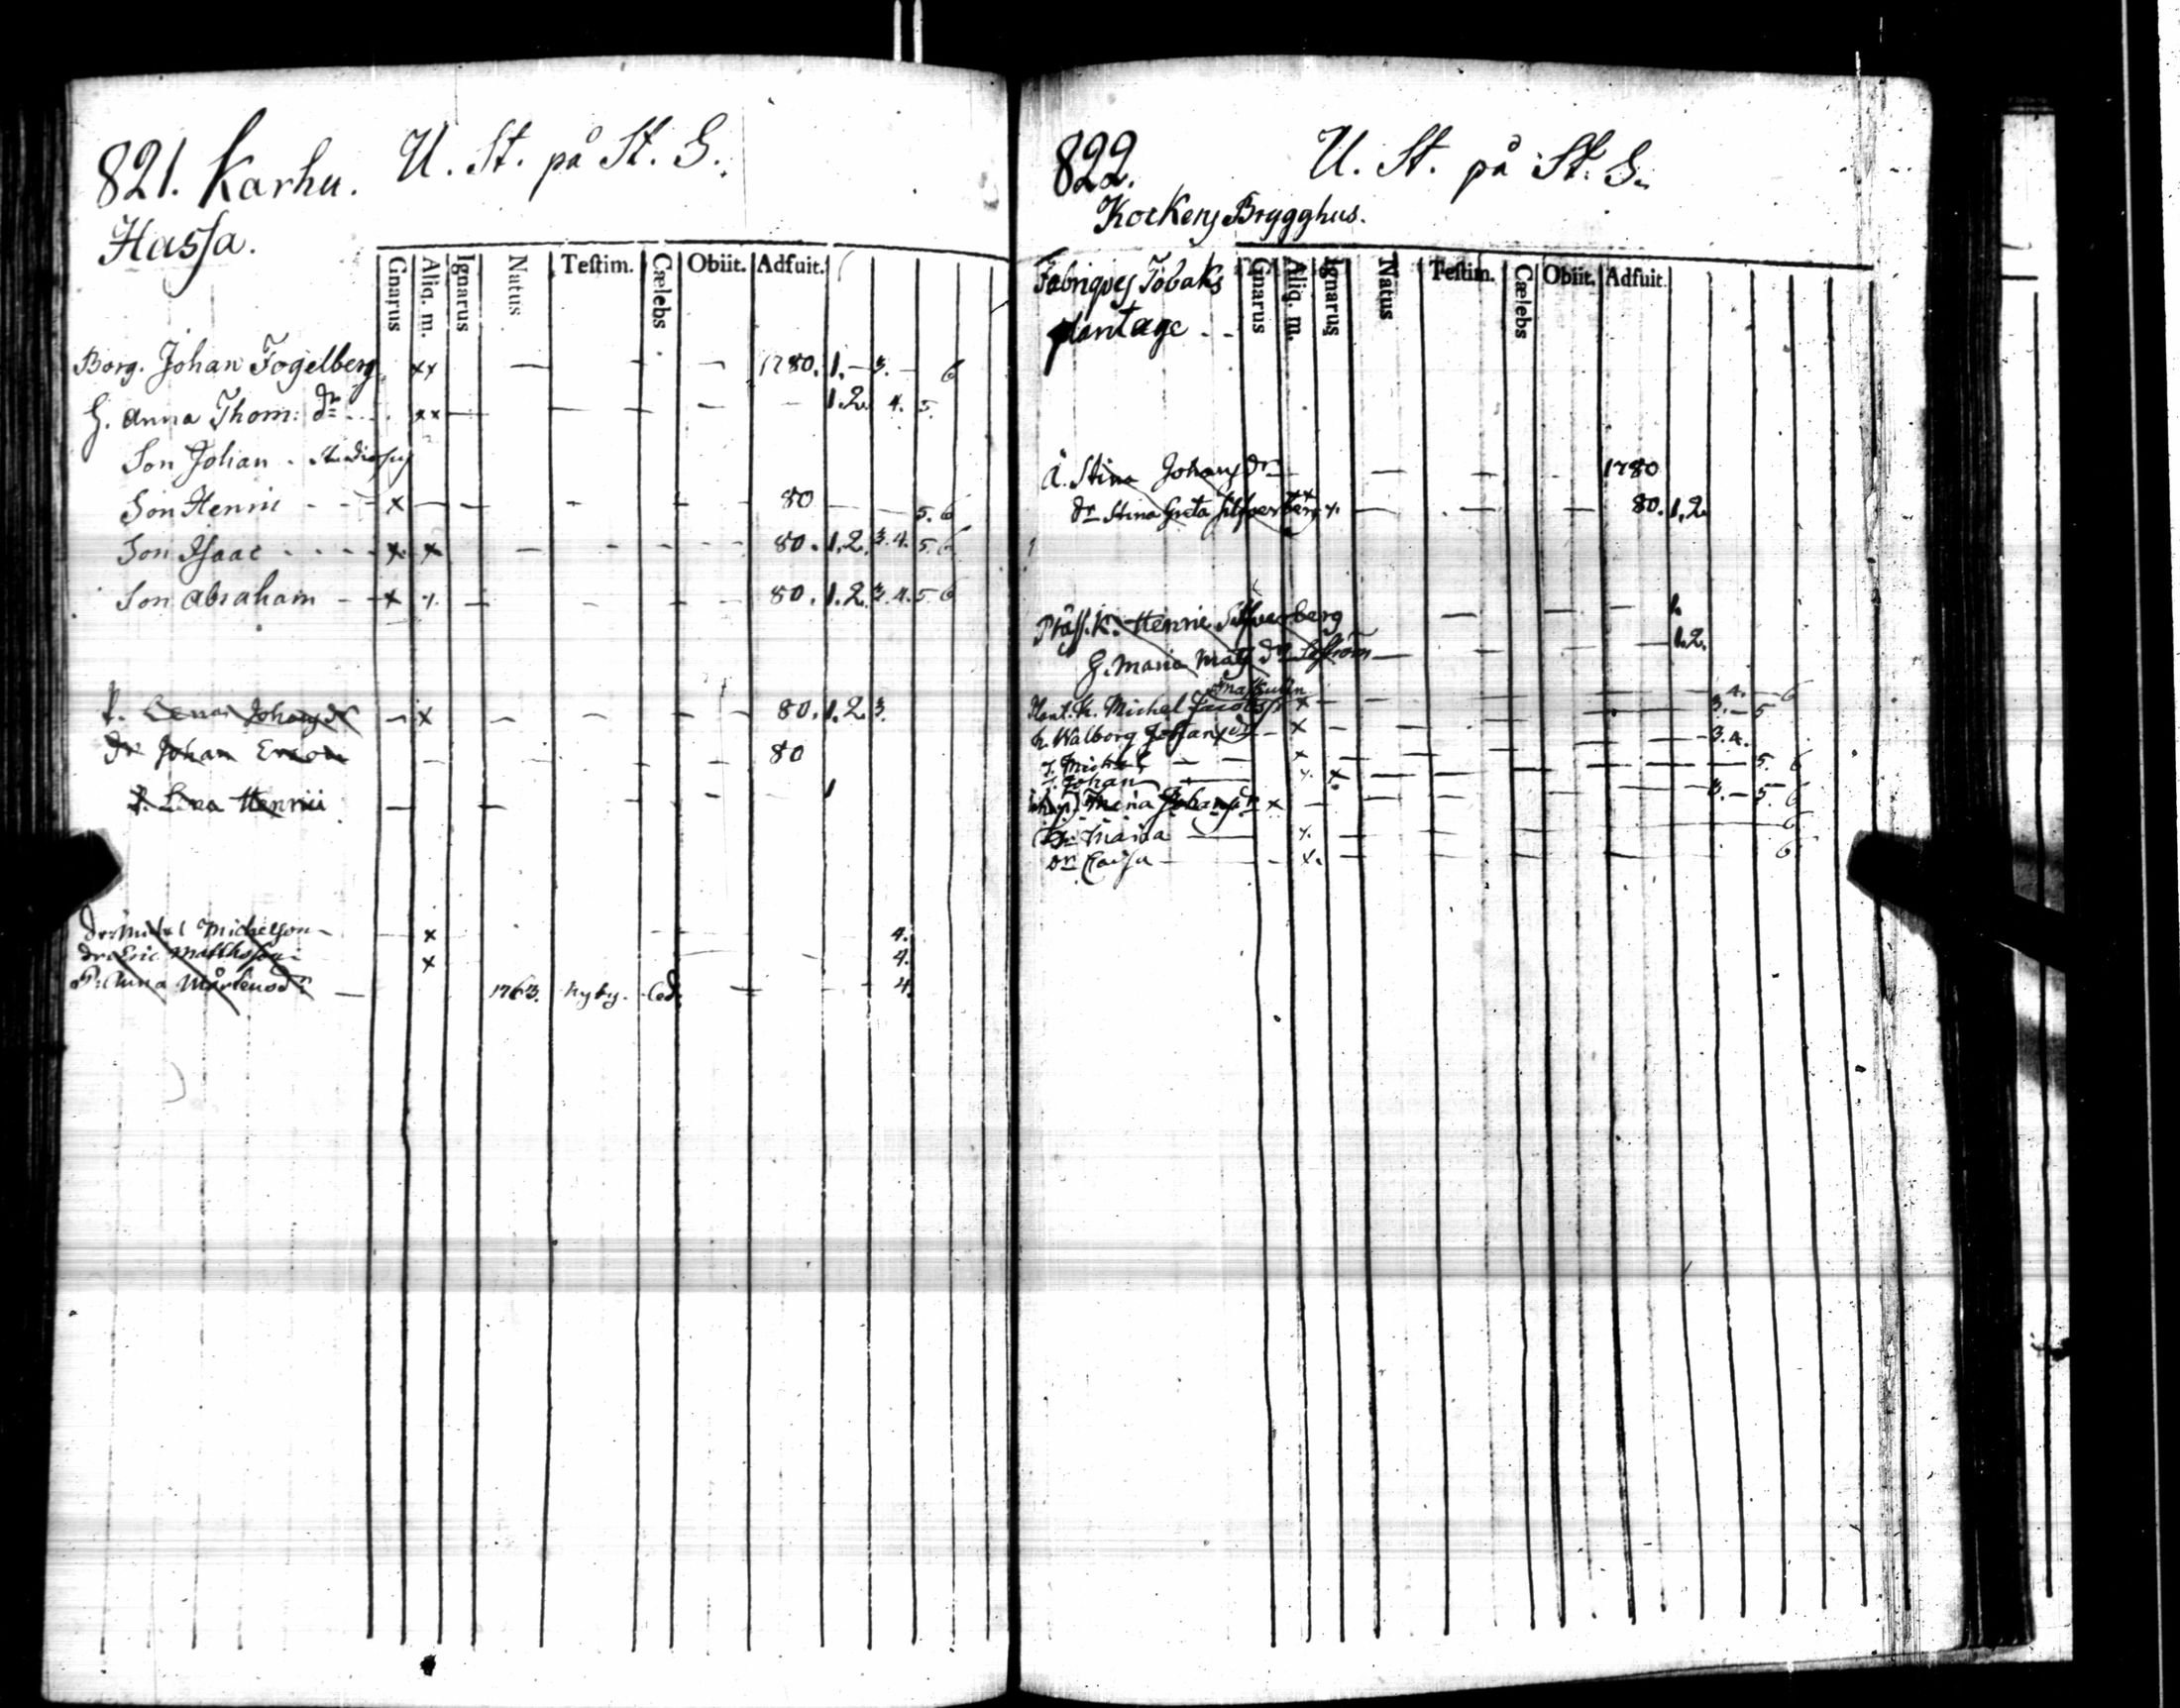 821. Karhu. U. St. på St. S.
Hassa.
Gnarus Aliq. m. Ignarus Natus Testim. Cælebs Obiit. Adfuit.
Borg. Johan Fogelberg xx — - — 1780. 1. — 3. — 6
H. Anna Thom: dr xx — — — — — 1.2. 4. 5.
Son Johan . Studiosus
Son Henric - - - x — — - - - 80 — — 5. 6
Son Isaac - - - - x x — - - - - 80. 1. 2. 3. 4. 5. 6
Son Abraham - x x — - - - 80. 1. 2. 3. 4. 5. 6
P. Lena Johansdr — x — — - - - 80. 1. 2. 3.
dr Johan Ericson - - - - 80
P. Lena Henric — — - - - 1
dr Michel Michelson - x 4.
dr Eric Matthsson x 4.
P. Anna Mårtensdr — 1763. Nyby. Ced. — - - 4.
822. U. St. på St. S.
Kockens Brygghus.
Fabriques Tobaks
plantage - -
Gnarus Aliq. m. Ignarus Natus Testim. Cælebs Obiit. Adfuit.
Ä. Stina Johansdr — — - - 1780
dr Stina Greta Silfverberg x — - — — 80. 1. 2.
Henric Silfverberg — — - 1.
H. Maria Mats dr — - - — 1.2.
Plant. K. Michel x — — — — 4. — 6
h. Walborg Johansdr - x — — — — 3. — 5
S. Michel — — x — — — — 3. 4.
S. Johan — x. x — — — — — 5. 6
Johansdr x — — — — — 3. — 5. 6
Dr Maria — x. — — — — — 6
Dr Caisa — - x. — — — — — 6